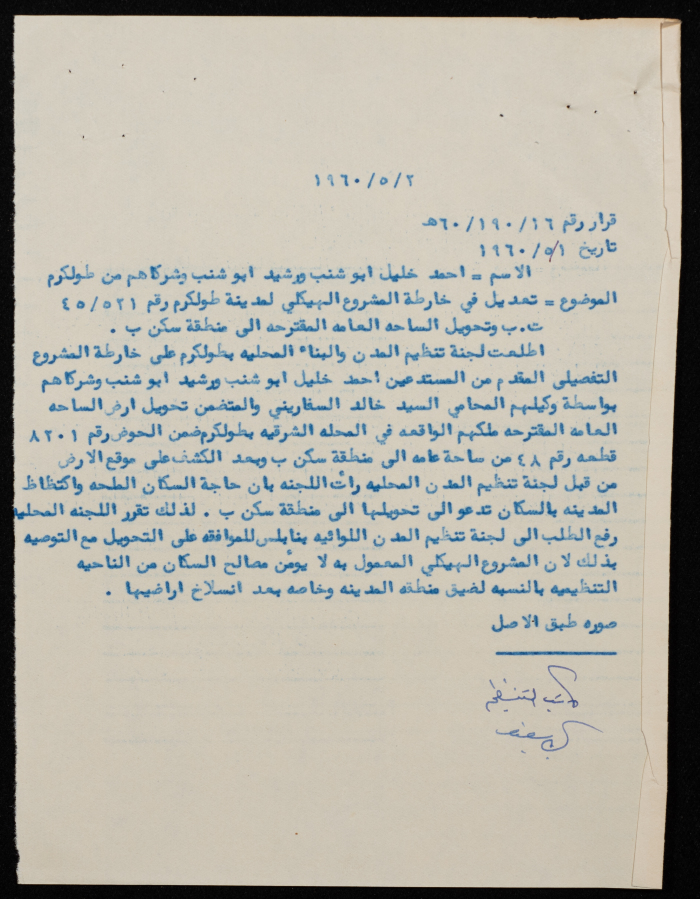 ١٩٦٠/٥/٢
قرار رقم ٦٠/١٩٠/١٦هـ
تاريخ ١٩٦٠/٥/١
الاسم = احمد خليل ابو شنب ورشيد ابو شنب وشركاهم من طولكرم
الموضوع = تعديل في خارطة المشروع الهيكلي لمدينة طولكرم رقم ٤٥/٥٢١
ت.ب وتحويل الساحه العامه المقترحه الى منطقة سكن ب .
اطلعت لجنة تنظيم المدن والبناء المحليه بطولكرم على خارطة المشروع
التفصيلي المقدم من المستدعين احمد خليل ابو شنب ورشيد ابو شنب وشركاهم
بواسطة وكيلهم المحامي السيد خالد السفاريني والمتضمن تحويل ارض الساحه
العامه المقترحه ملكهم الواقعه في المحله الشرقيه بطولكرم ضمن الحوض رقم ٨٢٠١
قطعه رقم ٤٨ من ساحة عامه الى منطقة سكن ب وبعد الكشف على موقع الارض
من قبل لجنة تنظيم المدن المحليه رأت اللجنه بان حاجة السكان الملحه واكتظاظ
المدينه بالسكان تدعو الى تحويلها الى منطقة سكن ب . لذلك تقرر اللجنه المحليه
رفع الطلب الى لجنة تنظيم المدن اللوائيه بنابلس للموافقه على التحويل مع التوصيه
بذلك لان المشروع الهيكلي المعمول به لا يومّن مصالح السكان من الناحيه
التنظيميه بالنسبه لضيق منطقه المدينه وخاصه بعد انسلاخ اراضيها .
صوره طبق الاصل
كاتب التنظيم